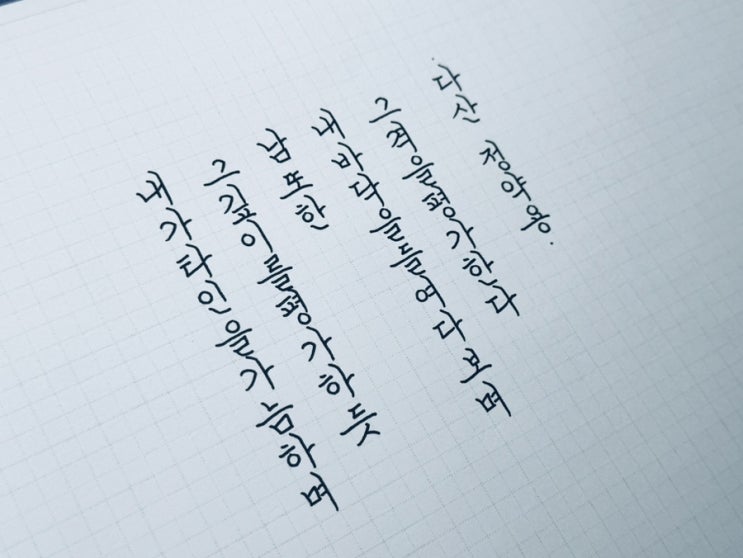 내가 타인을 가늠하며
그 깊이를 평가하듯
남 또한
내 바닥을 들여다보며
그 격을 평가한다
다산 정약용.